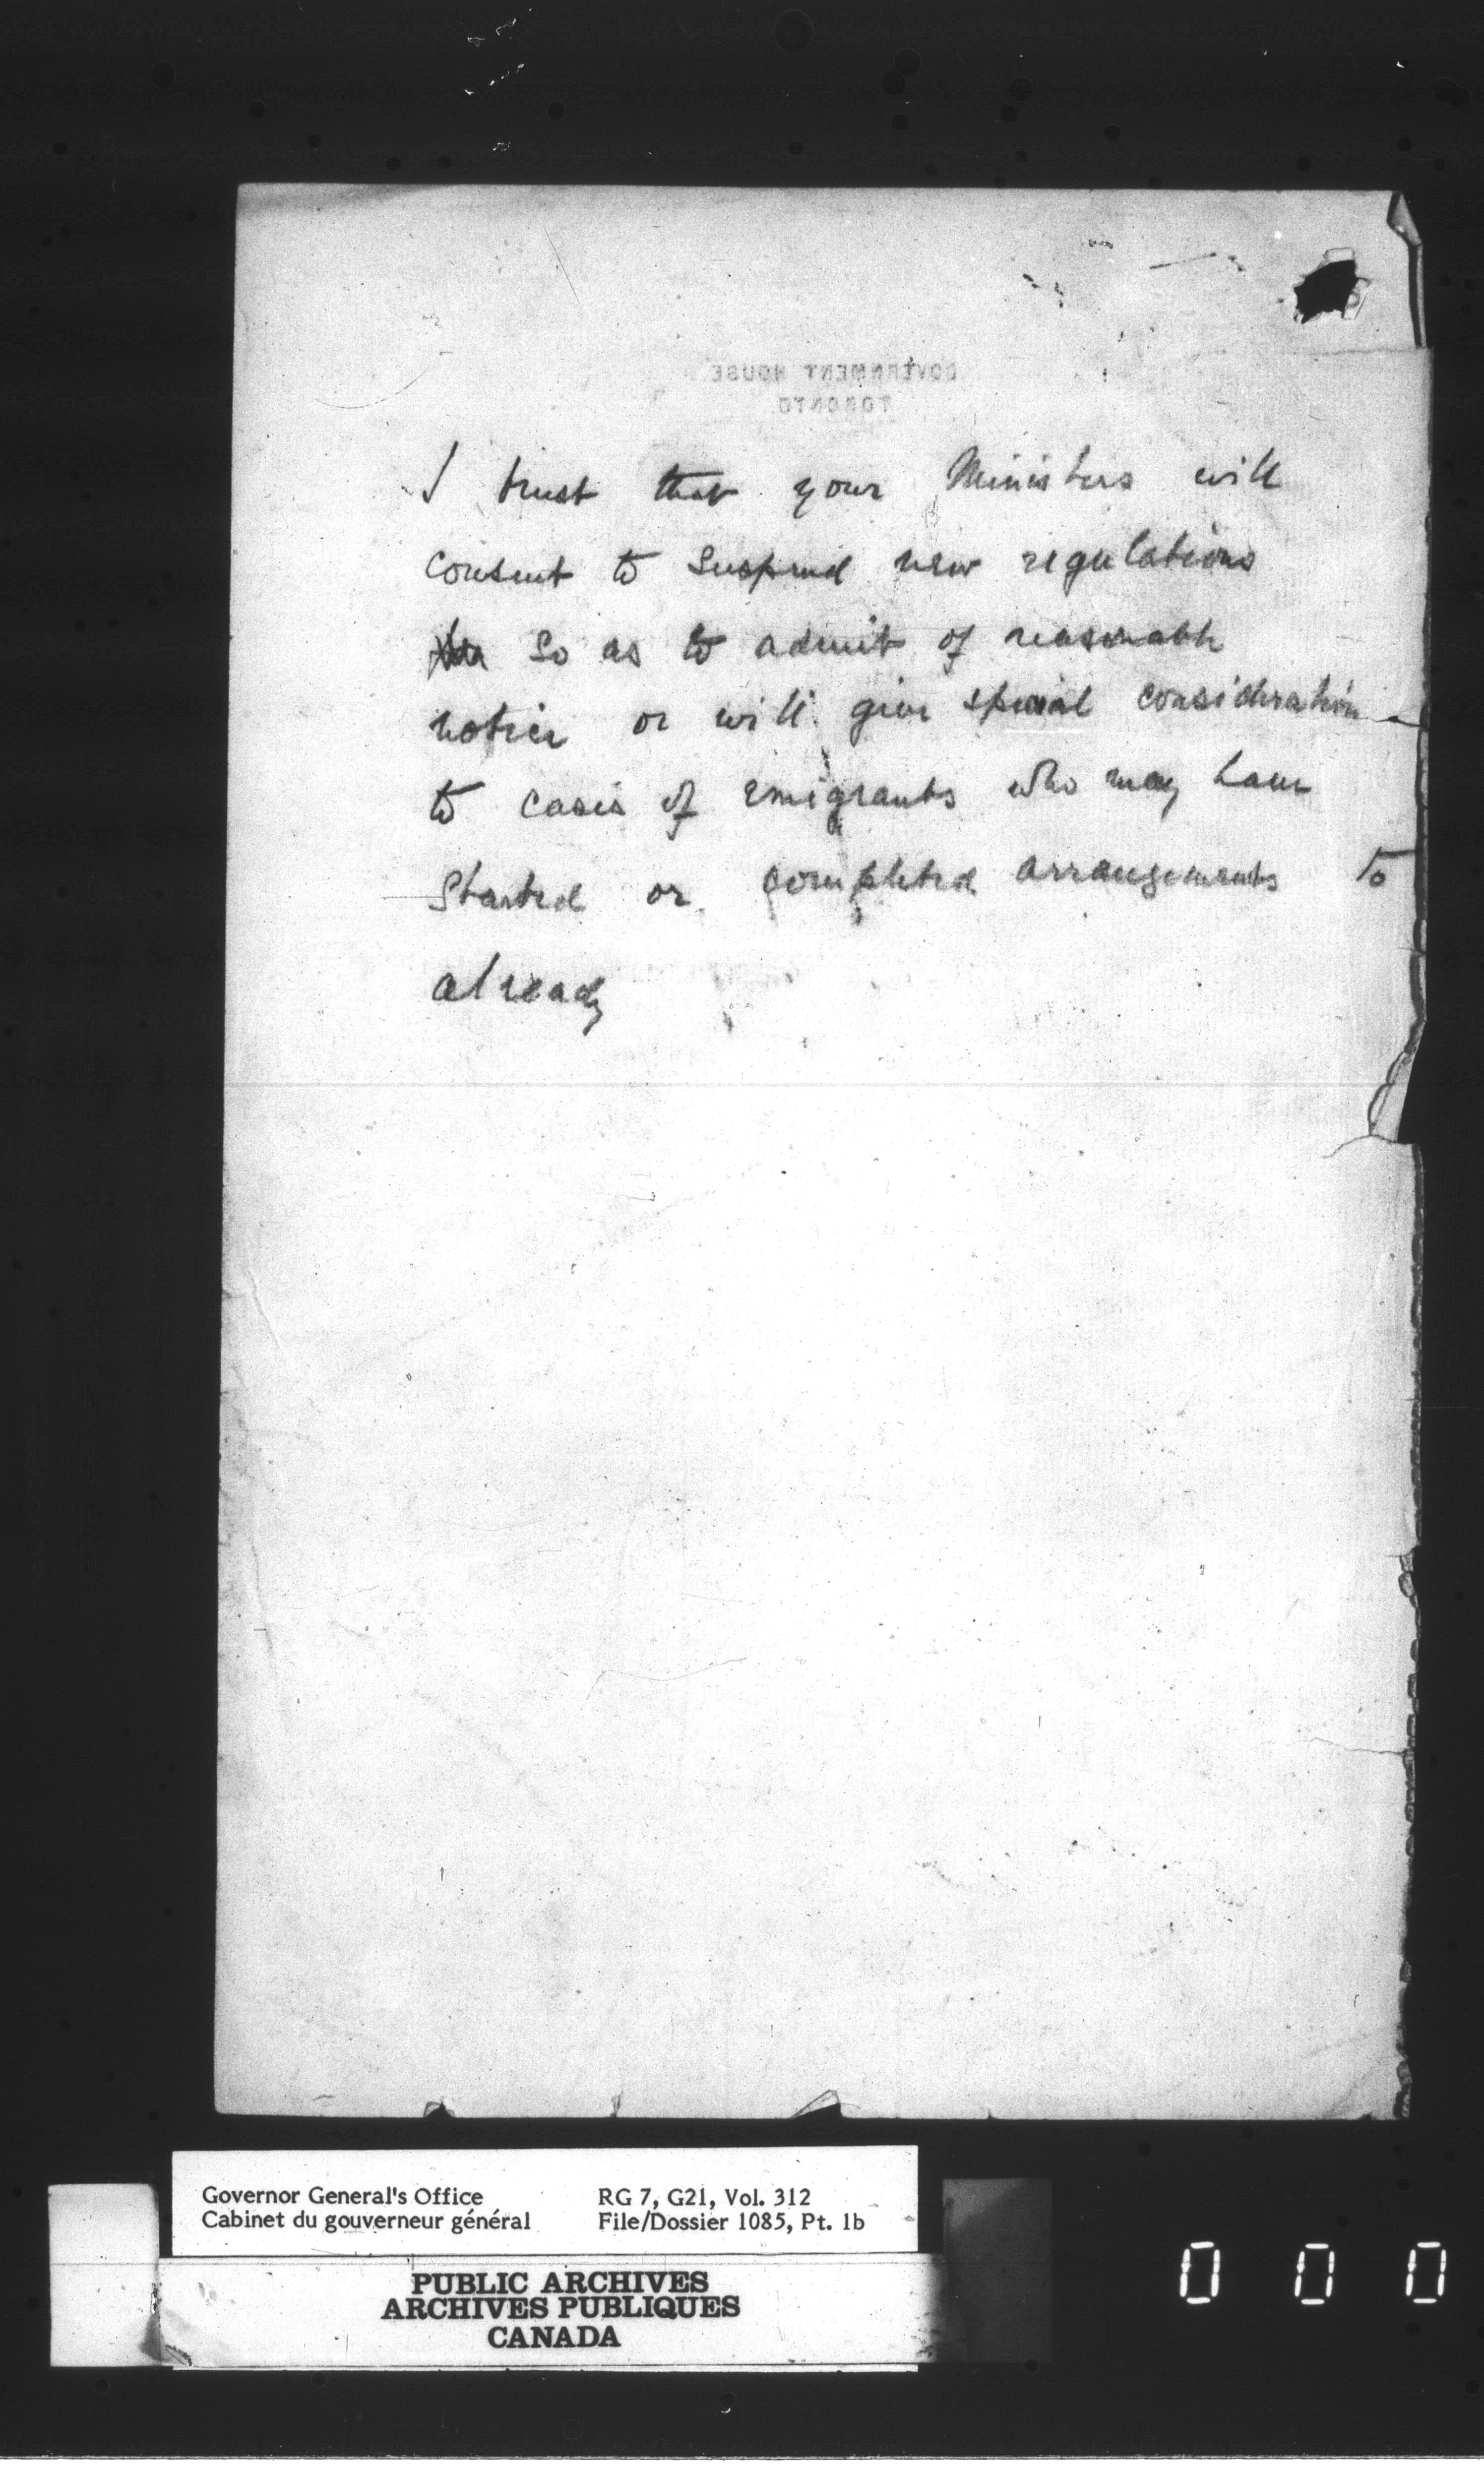 GOVERNMENT HOUSE
TORONTO
I trust that your Ministers will
consent to suspend new regulations
so as to admit of reasonable
notice or will give special consideration
to cases of emigrants who may have
started or completed arrangements to
already
Governor General's Office RG 7, G21, Vol. 312
Cabinet du gouverneur général File/Dossier 1085, Pt. 1b
PUBLIC ARCHIVES
ARCHIVES PUBLIQUES
CANADA
0 0 0